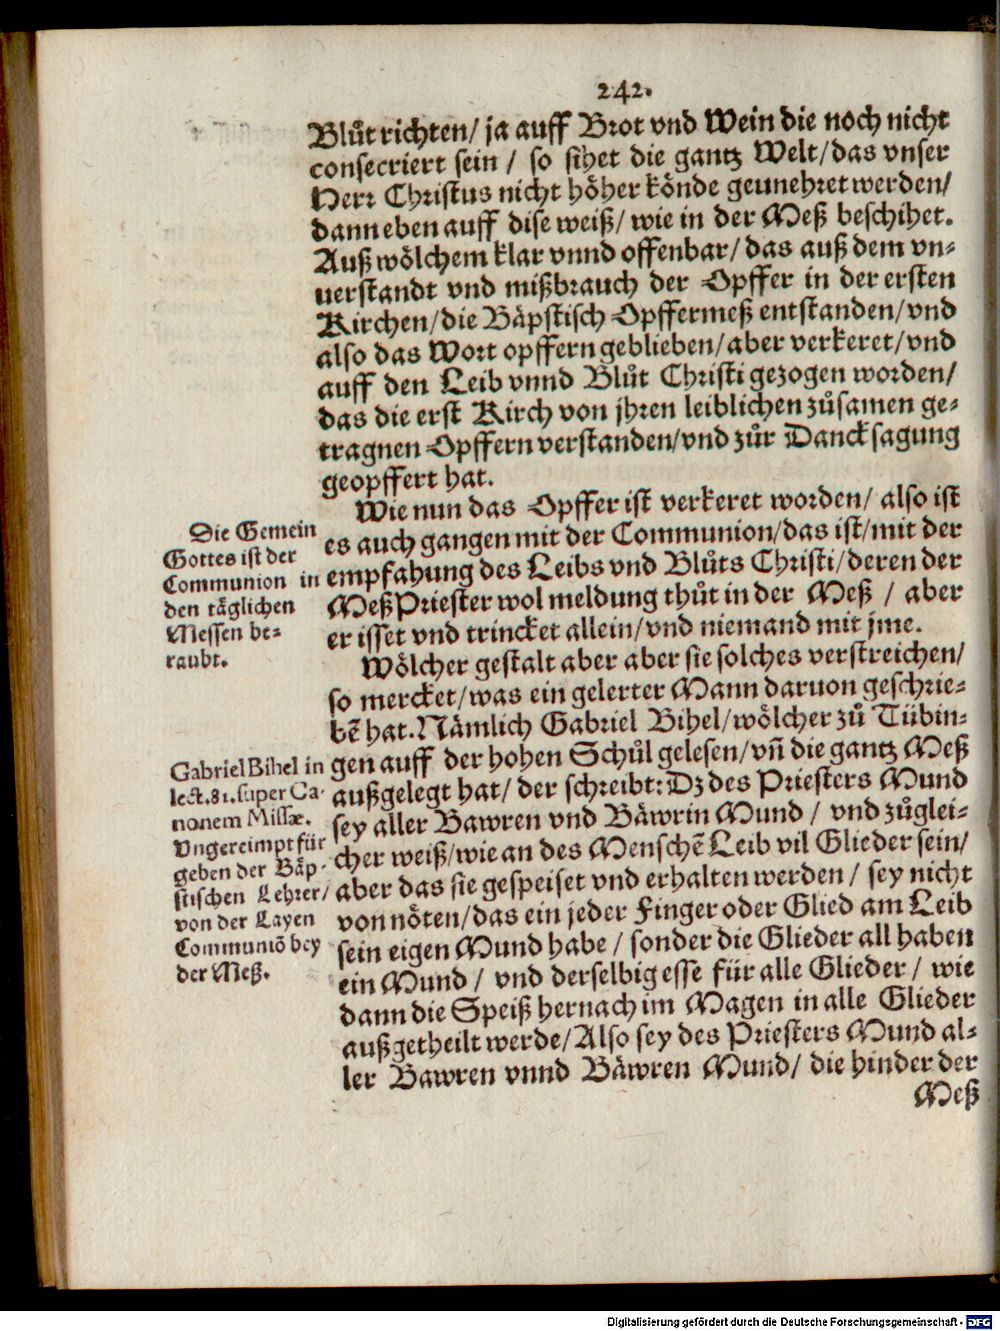 242.
Blůt richten/ ja auff Brot vnd Wein die noch nicht
consecriert sein / so sihet die gantz Welt/das vnser
Herr Christus nicht höher könde geunehret werden/
dann eben auff dise weiß/ wie in der Meß beschihet.
Auß wölchem klar vnnd offenbar/ das auß dem vn-
uerstandt vnd mißbrauch der Opffer in der ersten
Kirchen/die Bäpstisch Opffermeß entstanden/vnd
also das Wort opffern geblieben/aber verkeret/vnd
auff den Leib vnnd Blůt Christi gezogen worden/
das die erst Kirch von jhren leiblichen zůsamen ge-
tragnen Opffern verstanden/vnd zůr Dancksagung
geopffert hat.
Wie nun das Opffer ist verkeret worden/ also ist
es auch gangen mit der Communion/das ist/mit der
empfahung des Leibs vnd Blůts Christi/deren der
MeßPriester wol meldung thůt in der Meß / aber
er isset vnd trincket allein/vnd niemand mit jme.
Die Gemein
Gottes ist der
Communion in
den täglichen
Messen be-
raubt.
Wölcher gestalt aber aber sie solches verstreichen/
so mercket/was ein gelerter Mann daruon geschrie-
bẽ hat. Nämlich Gabriel Bihel/wölcher zů Tübin-
gen auff der hohen Schůl gelesen/vñ die gantz Meß
außgelegt hat/ der schreibt: Dz des Priesters Mund
sey aller Bawren vnd Bäwrin Mund / vnd zůglei-
cher weiß/wie an des Menschẽ Leib vil Glieder sein/
aber das sie gespeiset vnd erhalten werden / sey nicht
von nöten/das ein jeder Finger oder Glied am Leib
sein eigen Mund habe / sonder die Glieder all haben
ein Mund / vnd derselbig esse für alle Glieder / wie
dann die Speiß hernach im Magen in alle Glieder
außgetheilt werde/Also sey des Priesters Mund al-
ler Bawren vnnd Bäwren Mund/ die hinder der
Meß
Gabriel Bihel in
lect.81.super Ca-
nonem Missæ.
Vngereimpt für
geben der Bäp-
stischen Lehrer/
von der Layen
Communiõ bey
der Meß.
Digitalisierung gefördert durch die Deutsche Forschungsgemeinschaft - DFG